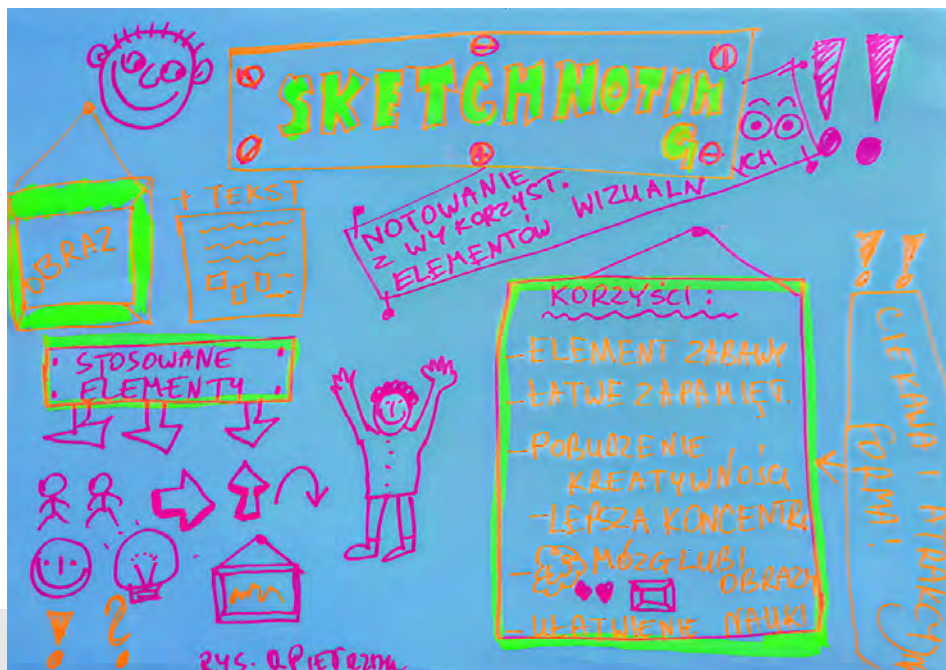 SKETCHNOTIN
G
NOTOWANIE
Z WYKORZYST.
ELEMENTÓW WIZUALNYCH
!!
OBRAZ
+ TEKST
STOSOWANE
ELEMENTY
! ?
KORZYŚCI:
- ELEMENT ZABAWY
- ŁATWE ZAPAMIĘT.
- POBUDZENIE
KREATYWNOŚCI
- LEPSZA KONCENTR.
- MÓZG LUBI
OBRAZY
- UŁATWIENIE NAUKI
!!
CIEKAWA I ATRAKCYJN
FORMA!
RYS.